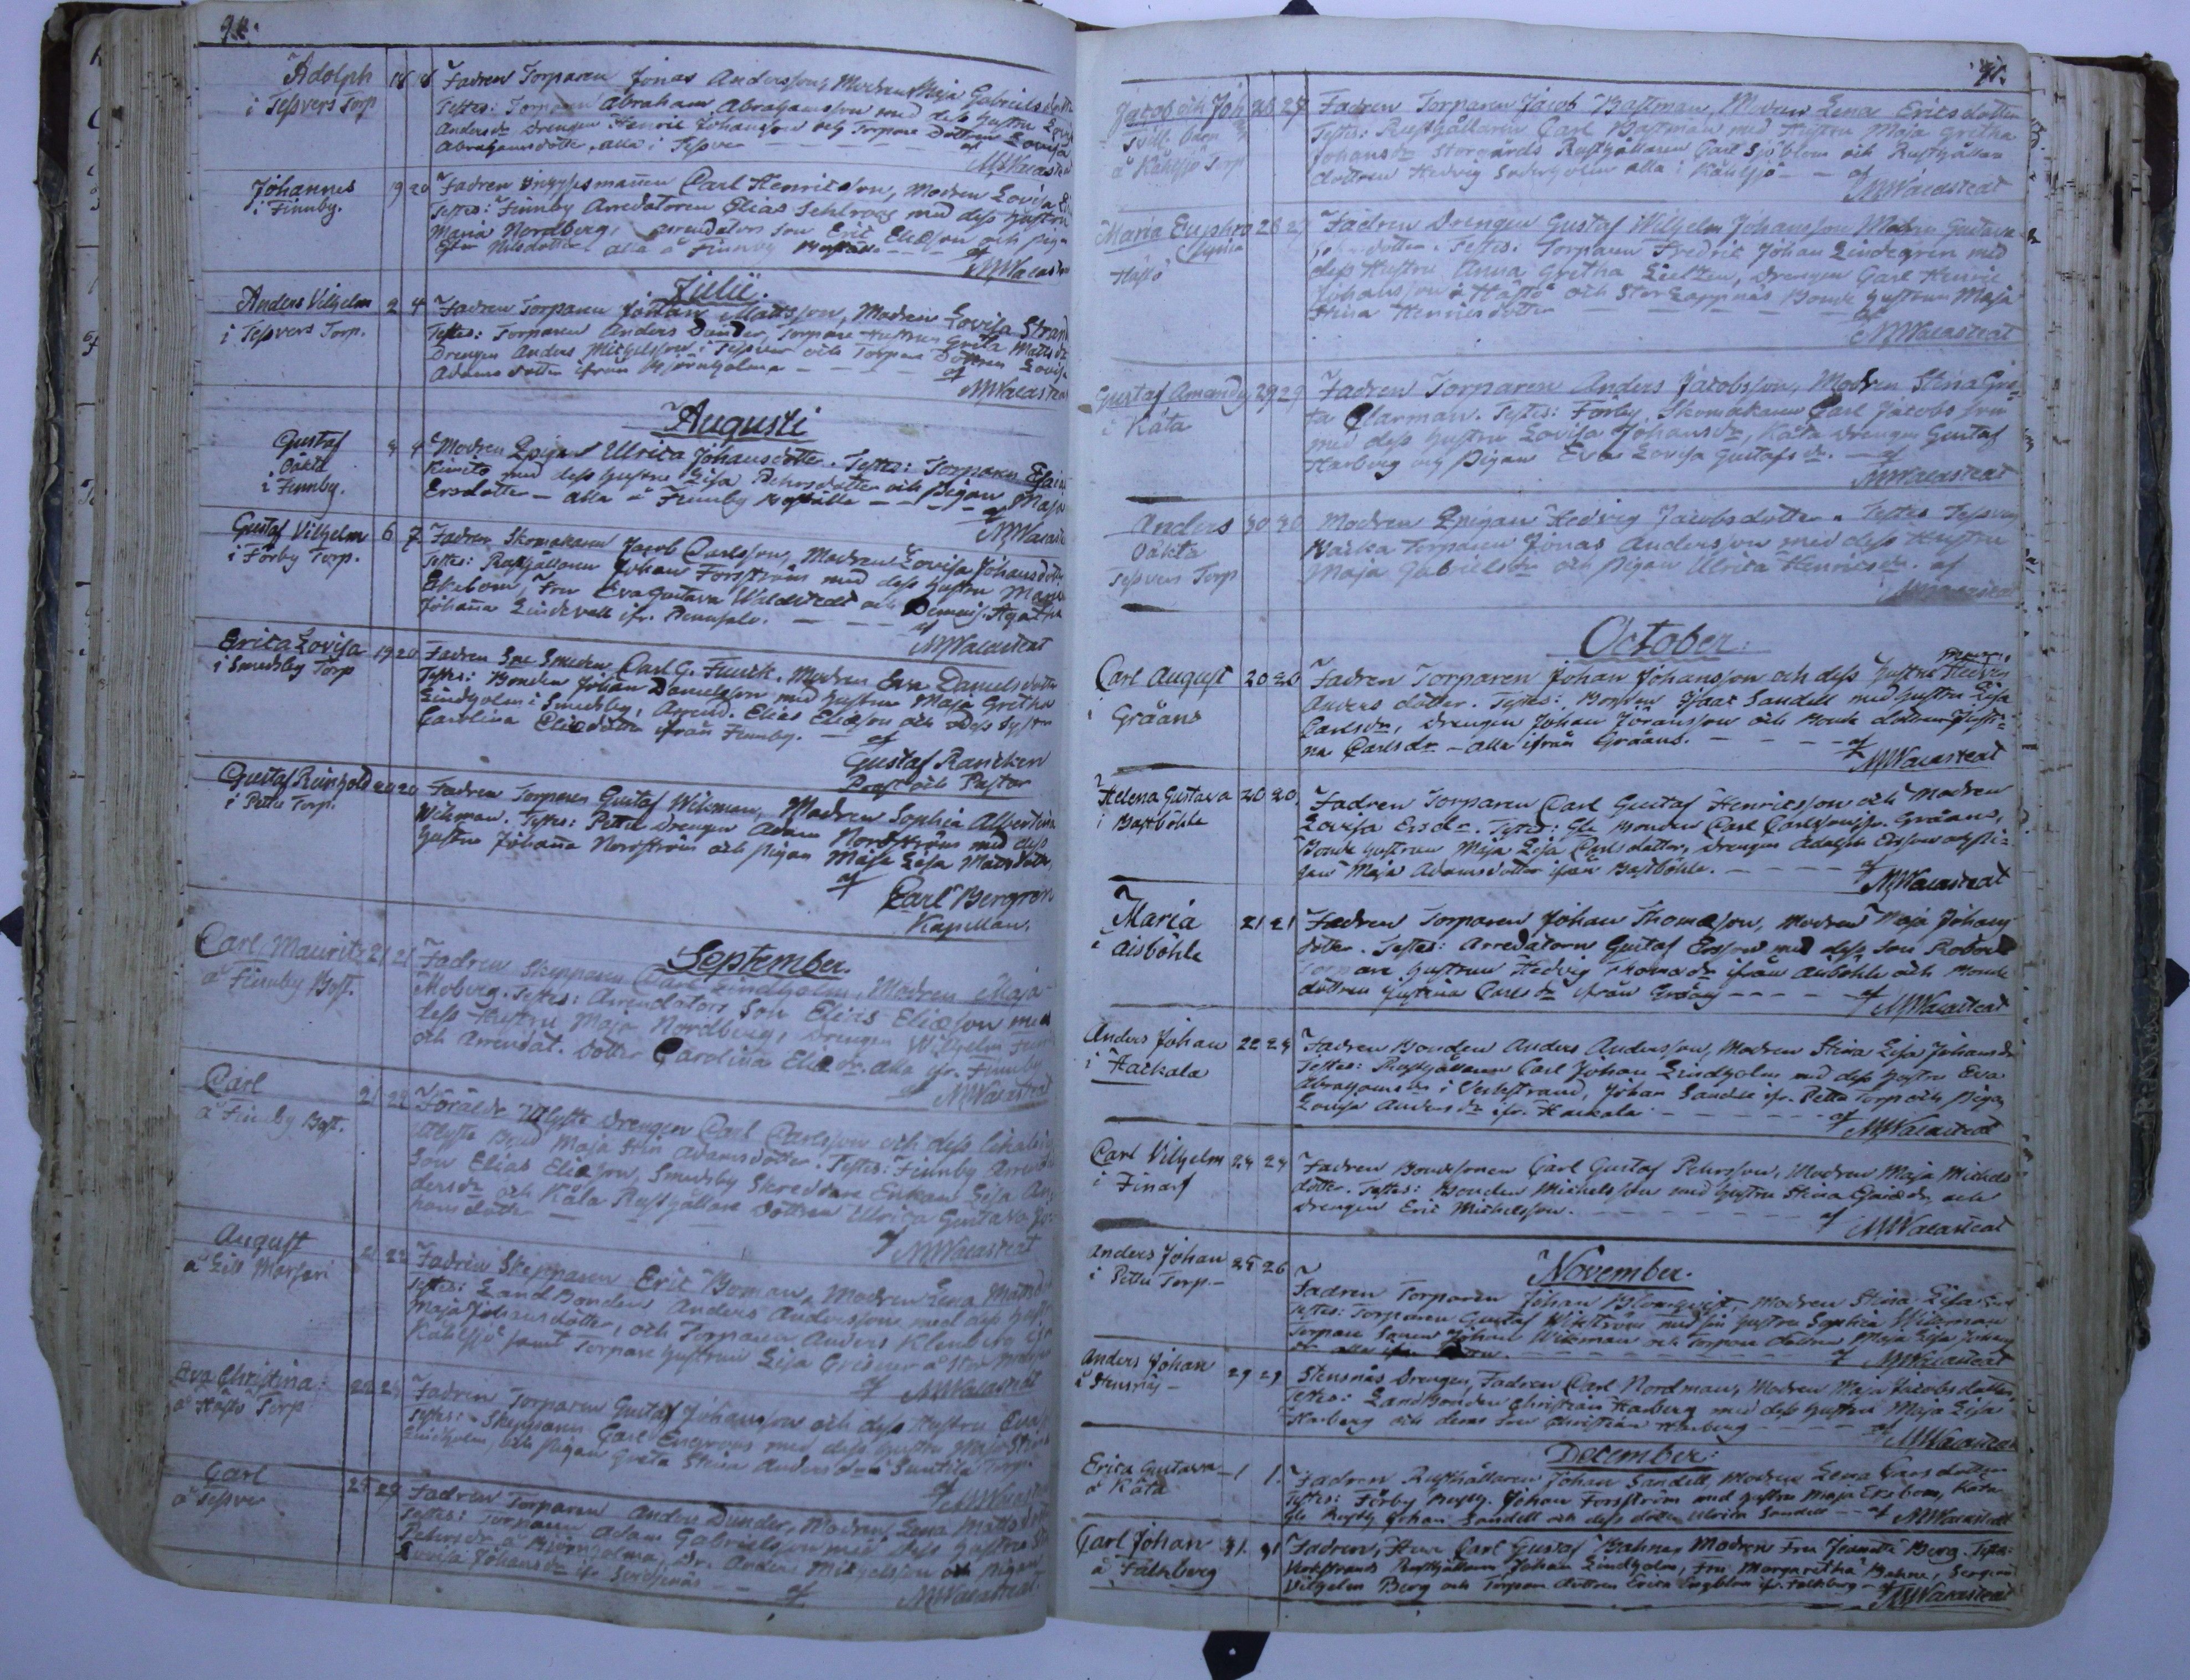 92.
Adolph 18 18 Fadren Torparen Jonas Andersson, Modren Maja Gabrielsdotter
i Tessvers Torp Testes: Torparen Abraham Abrahamsson med dess hustru
Andersdr Drengen Henric Johansson och Torpare Dottren Lovisa
Abrahamsdotter, alla i Tessver - - - af
MWalastedt
Johannes 19 20 Fadren Carl Henricsson, Modren Lovisa
i Finnby. Testes: Finnby Arredatoren Elias Sehlroos med dess hustru
Maria Nordberg, arrendators son Eric Eliæson och pig
Nilsdotter alla å Finnby - - - af
MWalastedt
Julii.
Anders Vilhelm 2 4 Fadren Torparen Johan Mattsson, Modren Lovisa Strand
i Tessvers Torp. Testes: Torparen Anders Dunder, Torpare Hustrun Greta Mattsdr
Drengen Anders Michelsson i Tessver och Torpare Dottren Lovisa
Adamsdotter ifrån Björnholma - - - af
MWalastedt
Augusti
Gustaf 3 4 Modren Pigan Ulrica Johansdotter. Testes: Torparen Esaias
Oäkta Kimito med dess hustru Lisa Pehrsdotter och pigan Maja
i Finnby. Ersdotter - alla å Finnby Boställe - - - af
MWalastedt
Gustaf Vilhelm 6 7 Fadren Skomakaren Jacob Carlsson, Modren Lovisa Johansdotter
i Förby Torp. Testes: Rusthållaren Johan Forsström med dess hustru Maria
Ekebom, Fru Eva Gustava Waldstedt och Demois. Agatha
Johanna Lindevall ifr. - - - af
MWalastedt
Erica Lovisa 19 20 Fadren Smeden Carl G. Funck, Modren Eva Danielsdotter
i Smedsby Torp Testes: Bonden Johan Danielsson med hustru Maja Gretha
Lindholm i Smedsby, Arrend. Elias Eliæson och dess syster
Carolina Eliædotter ifrån Finnby. - af
Gustaf Rancken
Prost och Pastor
Gustaf Reinhold 20 20 Fadren Torparen Gustaf Wikman, Modren Sophia Albertina
i Pettu Torp. Wikman. Testes: Pettu Drengen Adam Nordström med dess
hustru Johanna Nordström och pigan Maja Lisa Mattsdotter,
af
Carl Bergroth
Kapellan.
September.
Carl Mauritz 21 21 Fadren Skepparen Carl Lindholm, Modren Maja
å Finnby Bost. Moberg. Testes: Arrendators Son Elias Eliæson med
dess Hustru Maja Nordberg, Drengen Wilhelm
och Arrendat. Dotter Carolina Eliædr. alla fr. Finnby
af MWalastedt
Carl 21 22 Föräldr. Utlysta Drengen Carl Carlsson och dess
å Finnby Bost. utlysta Brud Maja Stin Adamsdotter. Testes: Finnby Arrendat.
Son Elias Eliæson, Smedsby Skreddare Enkan Lisa An-
dersdr och Kåla Rusthållare Dottren Ulrica Gustava
hansdotter - - - af MWalastedt
August 21 22 Fadren Skepparen Eric Boman, Modren Lena Mattsdr
å Lill Testes: Landbonden Anders Andersson med dess hustru
Maja Johansdotter, och Torparen Anders Klenberg
Kåhlsjö samt Torpare hustrun Lisa å Stor
af MWalastedt
Eva Christina 22 Fadren Torparen Gustaf Johansson och dess Hustru Eva
å Håstö Torp Testes: Skepparen Carl Engroos med dess hustru Maja Stina
Lindholm, och pigan Greta Stina Andersdr i Suntila Torp.
af MWalastedt
Carl 25 Fadren Torparen Anders Dunder, Modren Lena Mattsdr
å Tessver Testes: Torparen Adam Gabrielsson med dess hustru
Pehrsdr å Björnholma, Dr. Anders Michelsson och Pigan
Lovisa Johansdr - - af MWalastedt
93.
Jacob och Joh 26 27 Fadren Torparen Jacob Bastman, Modren Lena Ericsdotter
Tvill. barn Testes: Rusthållaren Carl Bastman med Hustru Maja Gretha
å Kåhlsjö Torp Johansdr Storgårds Rusthållaren Carl Sjöblom och Rusthållare
dottren Hedvig Söderholm alla i Kåhlsjö - - af
MWalastedt
Maria Euphro 28 29 Fadren Drengen Gustaf Wilhelm Johansson Modren Gustava
syna dotter. Testes: Torparen Fredric Johan Lindegren med
Håstö dess Hustru Anna Gretha Lietzen, Drengen Carl Henric
Johansson i Håstö och Stor Lappnäs Bonde hustrun Maja
Stina Henricsdotter - - - af
MWalastedt
Gustaf Amandus 29 29 Fadren Torparen Anders Jacobsson, Modren Stina Gre-
i Kåta ta Clarman. Testes: Förby Skomakaren Carl Jacobsson
med dess hustru Lovisa Johansdr, Kåta Drengen Gustaf
Harberg och Pigan Eva Lovisa Gustafsdr. - af
MWalastedt
Anders 30 30 Modren Pigan Hedvig Jacobsdotter. Testes Tessver
Oäkta Backa Torparen Jonas Andersson med dess Hustru
Tessvers Torp Maja Gabrielsdr och Pigan Ulrica Henricsdr. af
October.
Carl August 20 20 Fadren Torparen Johan Johansson och dess hustru Hedvig
i Gråäns Andersdotter. Testes: Bonden Isaac Sandell med hustru Lisa
Carlsdr, Drengen Johan Jöransson och Bonde dottren Justi-
na Carlsdr - alla ifrån Gråäns. - - - af
MWalastedt
Helena Gustava 20 20 Fadren Torparen Carl Gustaf Henricsson och Modren
i Bastböhle Lovisa Ersdr. Testes: Gle Bonden Carl Carlsson ifr. Gråäns,
Bonde hustrun Maja Lisa Carlsdotter, Drengen Adolph Ersson och Pi-
gan Maja Adamsdotter ifrån Bastböhle. - - - af
MWalastedt
Maria 21 21 Fadren Torparen Johan Thomæson, Modren Maja Johans
i Aisböhle dotter. Testes: Arredatorn Gustaf Ersson med dess son
Torpare hustrun Hedvig Thomædr ifrån Aisböhle och Bonde
dottren Justina Carlsdr ifrån Gråäns - - - af
MWalastedt
Anders Johan 22 24 Fadren Bonden Anders Andersson, Modren Stina Lisa Johansdr
i Haikala Testes: Rusthållaren Carl Johan Lindholm med dess hustru Eva
Abrahamsdr i Verkstrand, Johan Sandle ifr. Pettu Torp och pigan
Lovisa Andersdr ifr. Haikala - - - af
MWalastedt
Carl Vilhelm 24 24 Fadren Bondesonen Carl Gustaf Pehrsson, Modren Maja Michels
i Finarf dotter. Testes: Bonden Michelsson med hustru Stina och
Drengen Eric Michelsson. - - - af
MWalastedt
November.
Anders Johan 25 26 Fadren Torparen Johan Blomqvist, Modren Stina Lisa
i Pettu Torp. - Testes: Torparen Gustaf med sin hustru Sophia Wikman
Torpare Sonen Johan Wikman och Torpare dottren Maja Lisa Johans
dr alla ifrån - - - af MWalastedt
Anders Johan 29 29 Stensnäs Drengen, Fadren Carl Nordman, Modren Maja Jacobsdotter
å Stensnäs - Testes: Landbonden Christian Harberg med dess hustru Maja Lisa
Harberg och deras son Christian Harberg - - - af
MWalastedt
December:
Erica Gustava 1 1. Fadren Rusthållaren Johan Sandell, Modren Lena Larsdotter
å Kåta Testes: Förby Rusth. Johan Forsström med hustru Maja Ekebom, Kåta
Gle Rusth. Johan Sandell och dess dotter Ulrica Sandell - - af MWalastedt
Carl Johan 31. 31 Fadren, Herr Carl Gustaf Bahne, Modren Fru Jeanette Berg. Testes:
å Falkberg Verkstrands Rusthållaren Johan Lindholm, Fru Margaretha Bahne, Sergeant
Vilhelm Berg och Torpare dottren Erica Engblom ifr. Falkberg - af
MWalastedt